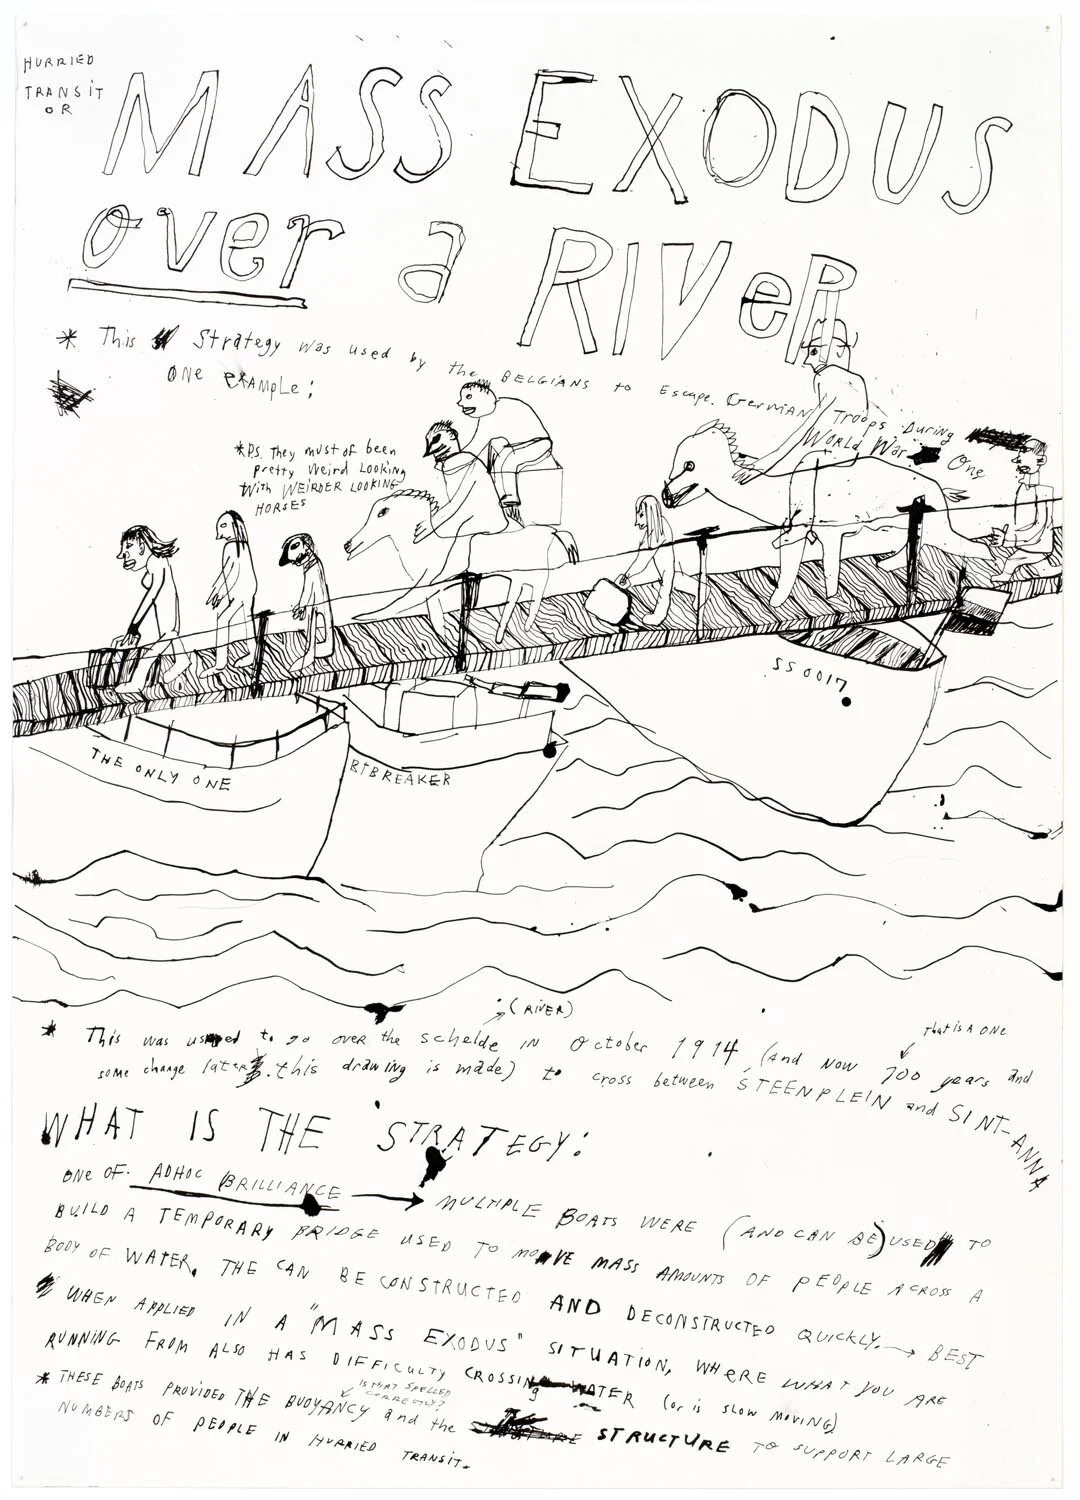 HURRIED
TRANSIT
OR
MASS EXODUS
over a RIVeR
* This Strategy was used by the BELGIANS to Escape German Troops During
ONE EXAMPLE: World War One
*P.S. They must of been
pretty Weird LOOKING
With WEIRDER LOOKING
HORSES
SS 0017
THE ONLY ONE
BTBREAKER
(RIVER)
that is A ONE
* This was used to go over the schelde IN October 1914 (and NOW 100 years and
some change later this drawing is made) to cross between STEENPLEIN and SINT-ANNA
WHAT IS THE STRATEGY:
ONE OF ADHOC BRILLIANCE → MULTIPLE BOATS WERE (AND CAN BE) USED TO
BUILD A TEMPORARY BRIDGE USED TO MOVE MASS AMOUNTS OF PEOPLE ACROSS A
BODY OF WATER, THE CAN BE CONSTRUCTED AND DECONSTRUCTED QUICKLY. → BEST
WHEN APPLIED IN A "MASS EXODUS" SITUATION, WHERE WHAT YOU ARE
RUNNING FROM ALSO HAS DIFFICULTY CROSSING WATER (or is SLOW MOVING)
IS THAT SPELLED
CORRECTLY?
* THESE BOATS PROVIDED THE BUOYANCY and the STRUCTURE TO SUPPORT LARGE
NUMBERS OF PEOPLE IN HURRIED TRANSIT.